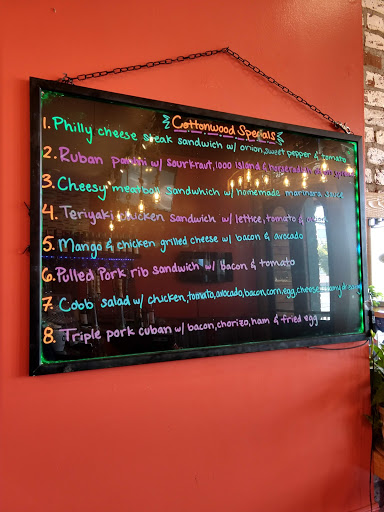 Cottonwood Specials
1. Philly cheese steak sandwich w/ onion, sweet pepper & tomato
2. Ruban panini w/ sourkraut, 1000 island &
3. Cheesy meatball Sandwhich w/ homemade marinara sauce
4. Teriyaki chicken Sandwich w/ lettice, tomato & onion
5. Mango & chicken grilled cheese w/ bacon & avocado
6. Pulled Pork rib sandwich w/ bacon & tomato
7. Cobb salad w/ chicken, tomato, avocado, bacon, corn, egg, cheese
8. Triple pork cuban w/ bacon, chorizo, ham & fried egg